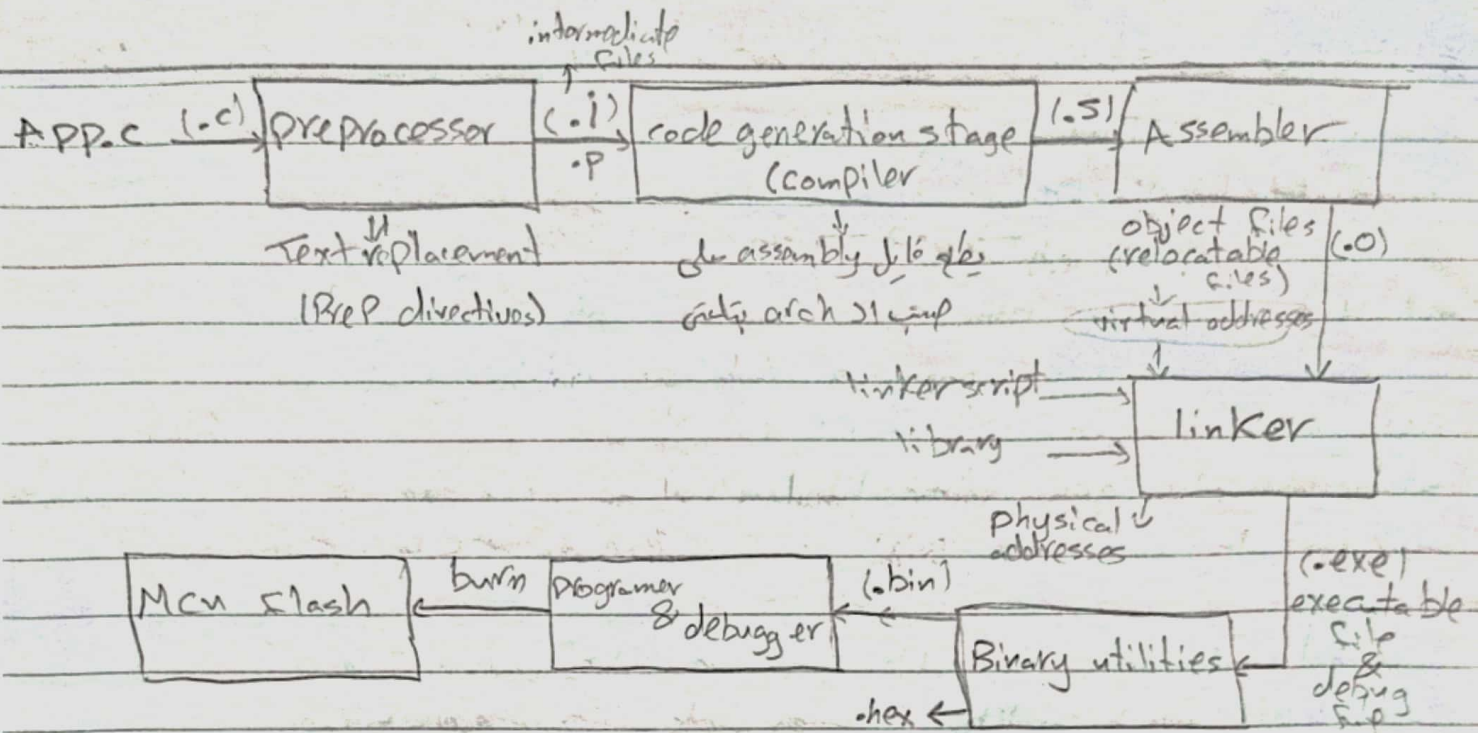 intermediate
files
App.c (.c) preprocessor (.i) code generation stage (.s) Assembler
.p (compiler
Text replacement
(Prep directives)
يطلع فايل assembly على
حسب ال arch بتاعتي
object files (.o)
(relocatable
files)
virtual addresses
linker script
library
linker
physical
addresses
(.exe)
executable
file
&
debug
Binary utilities
(.bin)
.hex
programer
& debugger
burn
Mcu flash